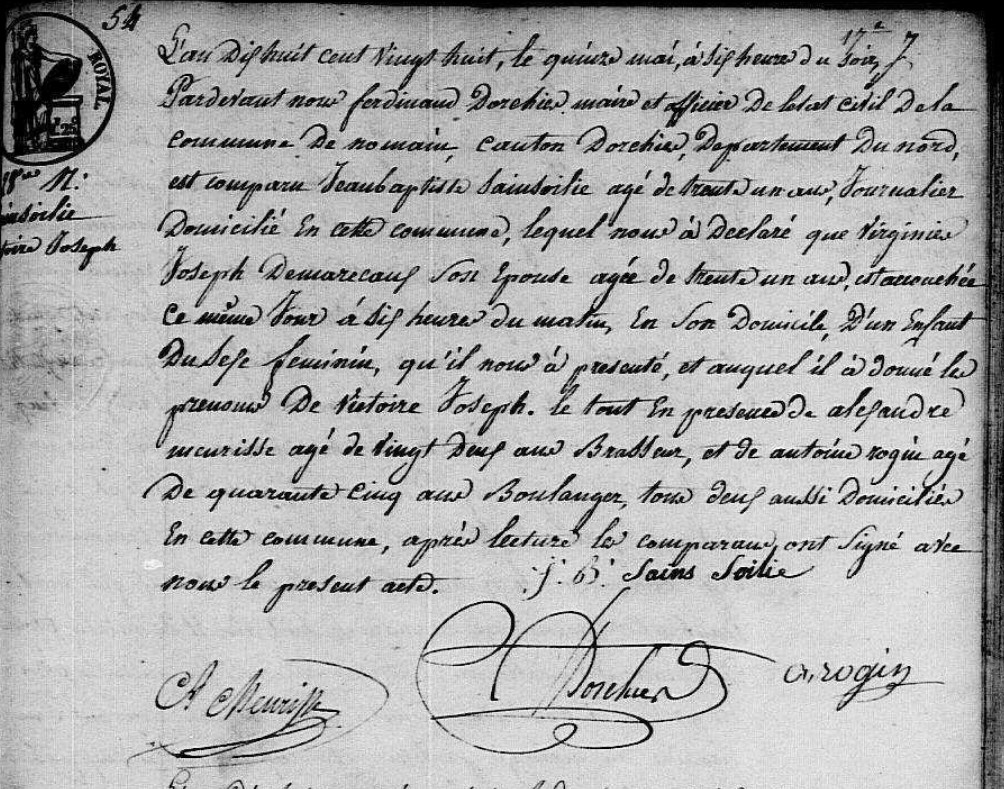 54
17e f
ROYAL
L'an Dix huit cent Vingt huit, le quinze mai, à Six heure du Soir,
Pardevant nous ferdinand Dorchies maire et officier De letat civil De la
commune De nomain, canton Dorchies, Departement Du nord,
est comparu Jeanbaptiste Sainsoilie agé de trente un ans, Journalier
Domicilié En cette commune, lequel nous à Declaré que Virginie
Joseph Demarecaux Son Epouse agée de trente un ans, est accouchée
Ce même Jour à Six heures du matin, En Son Domicile, D'un Enfant
Du Sexe feminin, qu'il nous à presenté, et auquel il à donné les
prenoms De Victoire Joseph. le tout En presence de alexandre
meurisse agé de Vingt Deux ans Brasseur, et de antoine rogin agé
De quarante Cinq ans Boulanger, tous deux aussi Domiciliés
En cette commune, après lecture les comparans, ont Signé avec
nous le present acte. J. B. Sains Soilie
N:
insoilie
toire Joseph
A Meurisse
Dorchies
a. rogin